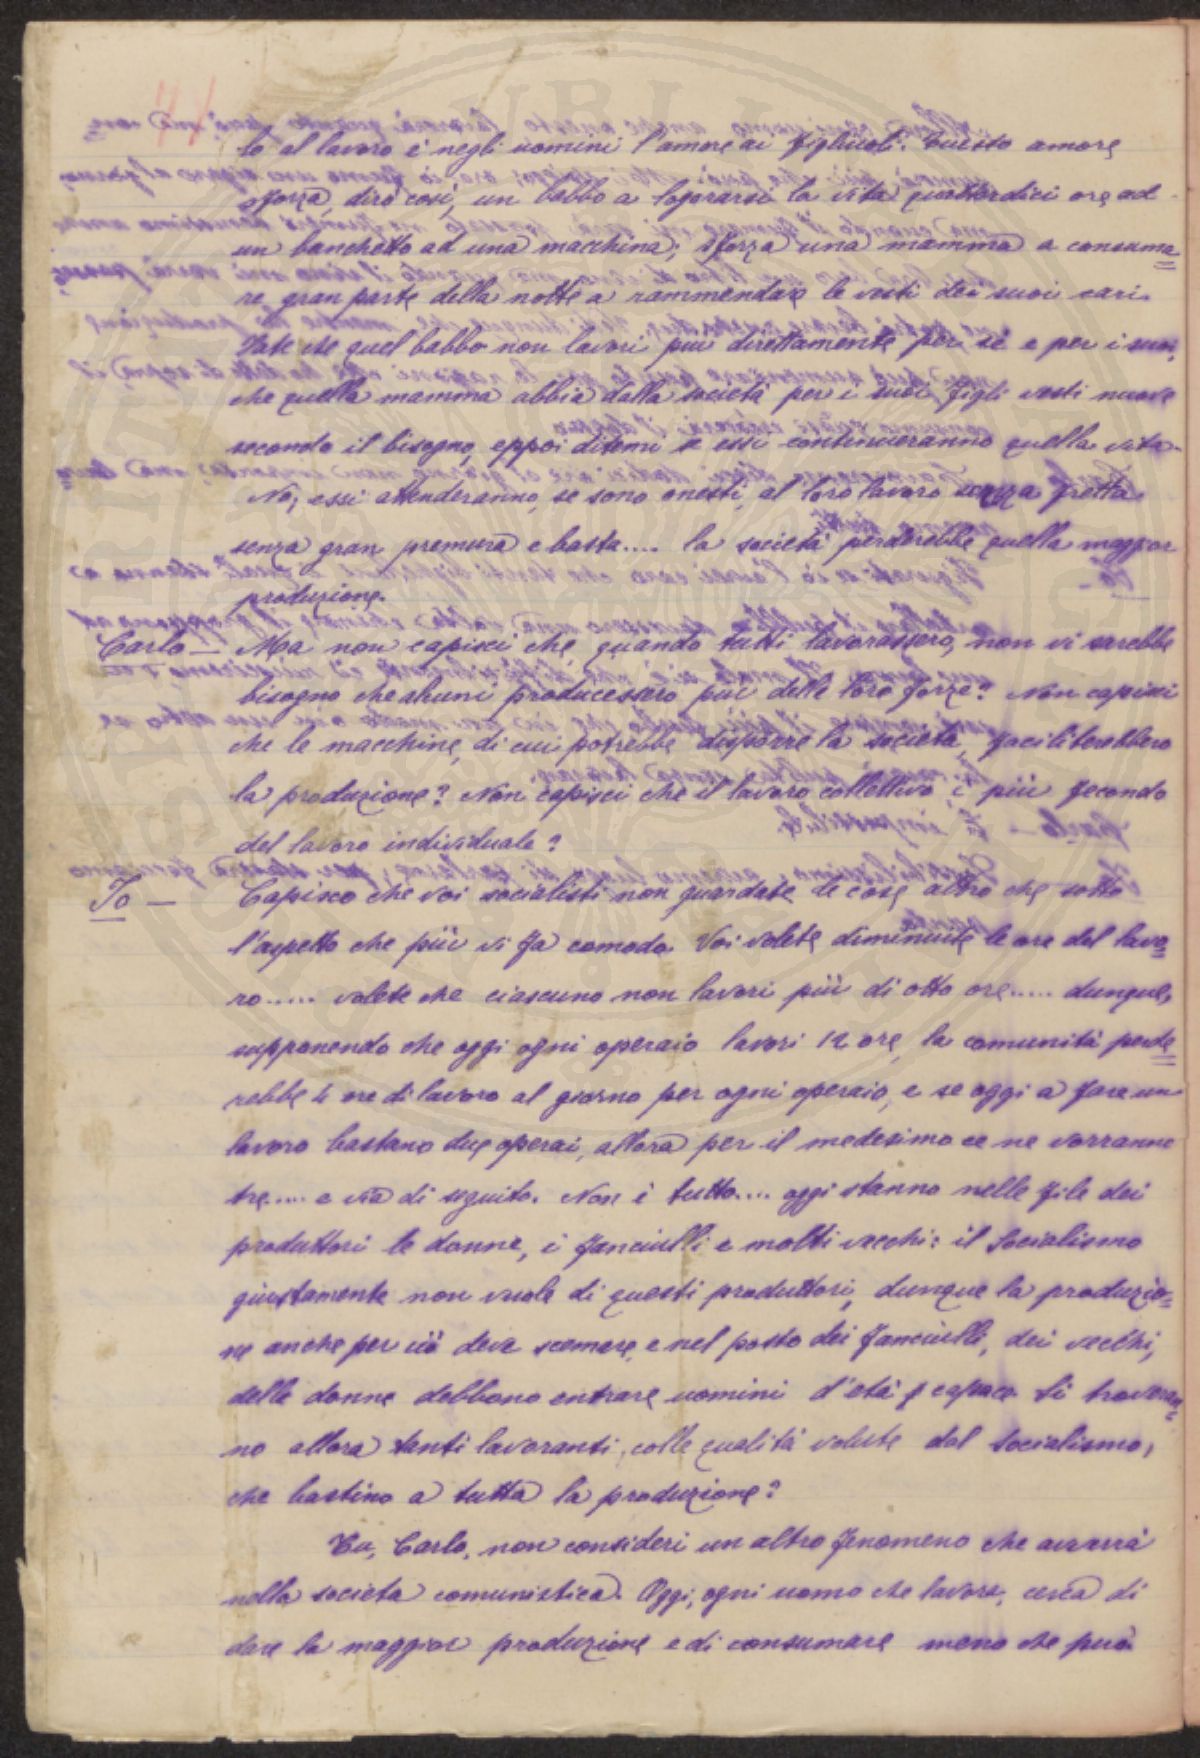 lo al lavoro è negli uomini l'amore ai figliuoli. Questo amore
sforza, dirò così, un babbo a logorarsi la vita quattordici ore ad
un banchetto ad una macchina; sforza una mamma a consuma=
re gran parte della notte a rammendare le vesti dei suoi cari.
Fate che quel babbo non lavori più direttamente per sè e per i suoi,
che quella mamma abbia dalla società per i suoi figli vesti nuove
secondo il bisogno, eppoi ditemi se essi continueranno quella vita.
No; essi attenderanno, se sono onesti, al loro lavoro senza fretta
senza gran premura e basta.... la società perderebbe quella maggior
produzione.
Carlo — Ma non capisci che, quando tutti lavorassero, non vi sarebbe
bisogno che alcuni producessero più delle loro forze? Non capisci
che le macchine, di cui potrebbe disporre la società, faciliterebbero
la produzione? Non capisci che il lavoro collettivo è più fecondo
del lavoro individuale?
Io — Capisco che voi socialisti non guardate le cose altro che sotto
l'aspetto che più vi fa comodo. Voi volete diminuite le ore del lavo=
ro..... volete che ciascuno non lavori più di otto ore..... dunque,
supponendo che oggi ogni operaio lavori 12 ore, la comunità perde=
rebbe 4 ore di lavoro al giorno per ogni operaio, e se oggi a fare un
lavoro bastano due operai, allora per il medesimo ce ne vorranno
tre.... e via di seguito. Non è tutto.... oggi stanno nelle file dei
produttori le donne, i fanciulli e molti vecchi: il Socialismo
giustamente non vuole di questi produttori, dunque la produzio=
ne anche per ciò deve scemare, e nel posto dei fanciulli, dei vecchi,
delle donne debbono entrare uomini d'età capace. Si troveran=
no allora tanti lavoranti, colle qualità volute dal Socialismo,
che bastino a tutta la produzione?
Tu, Carlo, non consideri un altro fenomeno che avverrà
nella società comunistica. Oggi, ogni uomo che lavora, cerca di
dare la maggior produzione e di consumare meno che può.